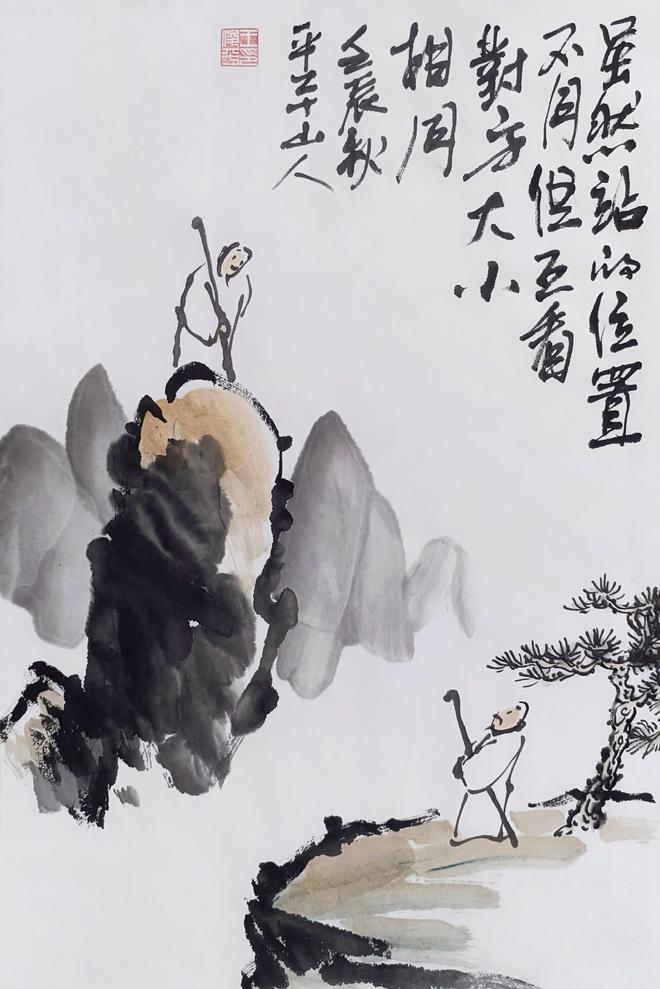 虽然站的位置
不同但互看
對方大小
相同
壬辰秋
平三十山人